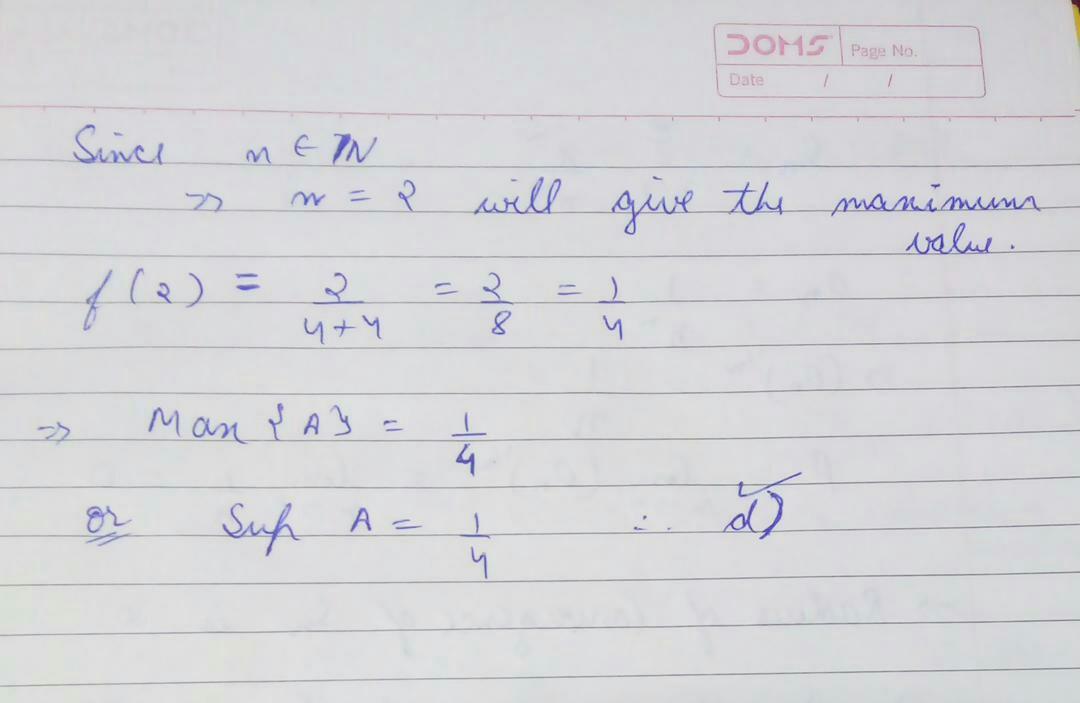 DOMS Page No.
Date / /
Since n ∈ IN
⇒ n = 2 will give the maximum
value.
f(2) = 2/(4+4) = 2/8 = 1/4
⇒ Max {A} = 1/4
or Sup A = 1/4 ∴ d) ✓